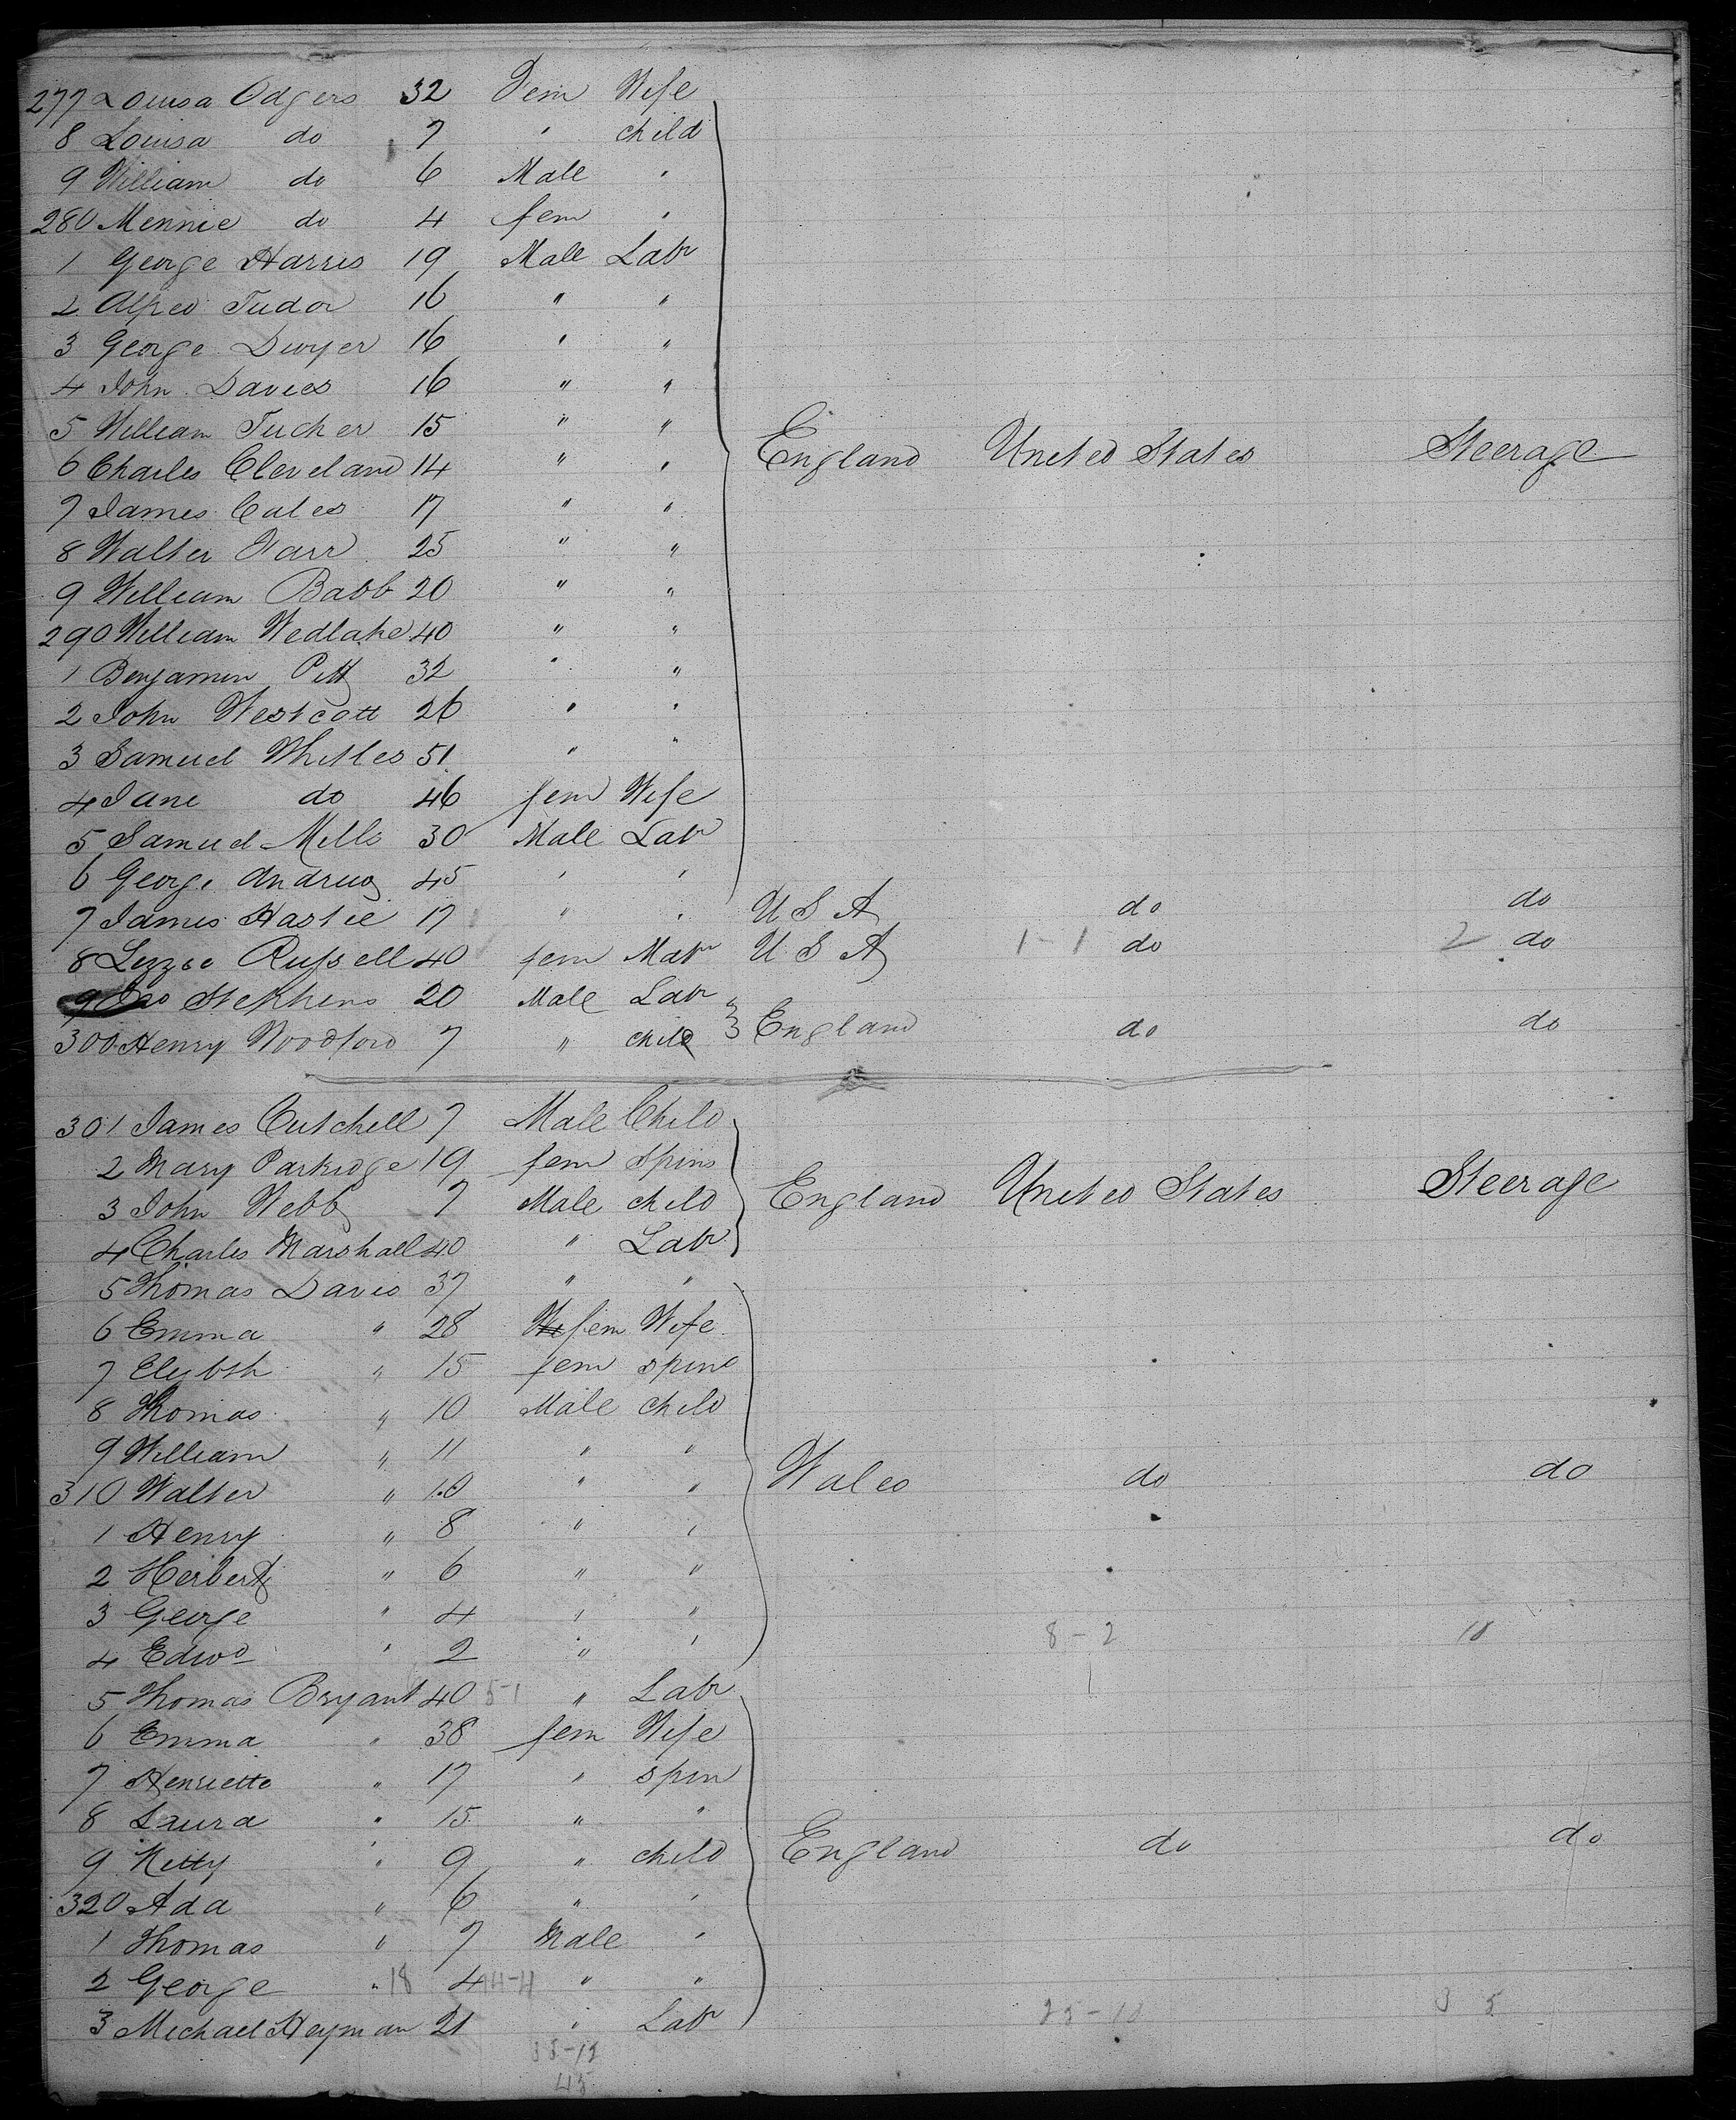 277 Louisa Odgers 32 Fem Wife
8 Louisa do 7 " child
9 William do 6 Male "
280 Mennie do 4 fem "
1 George Harris 19 Male Labr
2 Alfred Tudor 16 " "
3 George Dwyer 16 " "
4 John Davies 16 " "
5 William Tucker 15 " "
6 Charles Cleveland 14 " " England United States Steerage
7 James Cales 17 " "
8 Walter Farr 25 " "
9 William Babb 20 " "
290 William Wedlake 40 " "
1 Benjamin Pitt 32 " "
2 John Westcott 26 " "
3 Samuel Whitles 51 " "
4 Jane do 46 fem Wife
5 Samuel Mills 30 Male Labr
6 George Andrews 45 " "
7 James Hastie 17 " " U S A do do
8 Lizzie Russell 40 fem Matr U S A 1-1 do 2 do
9 Stephens 20 Male Labr
300 Henry Woodford 7 " child England do do
301 James Cutchell 7 Male Child
2 Mary Partridge 19 fem spins
3 John Webb 7 Male child England United States Steerage
4 Charles Marshall 40 " Labr
5 Thomas Davis 37 " "
6 Emma " 28 fem Wife
7 Elizbth " 15 fem spins
8 Thomas " 10 Male child
9 William " 11 " "
310 Walter " 10 " " Wales do do
1 Henry " 8 " "
2 Herbert " 6 " "
3 George " 4 " "
4 Edwd " 2 " " 8-2 10
5 Thomas Bryant 40 5-1 " Labr 1
6 Emma " 38 fem Wife
7 Henrietta " 17 " spin
8 Laura " 15 " "
9 Ketty " 9 " child England do do
320 Ada " 6 " "
1 Thomas " 7 Male "
2 George " 18 4 " "
3 Michael Heyman 21 " Labr 25-10 3 5
33-12
45